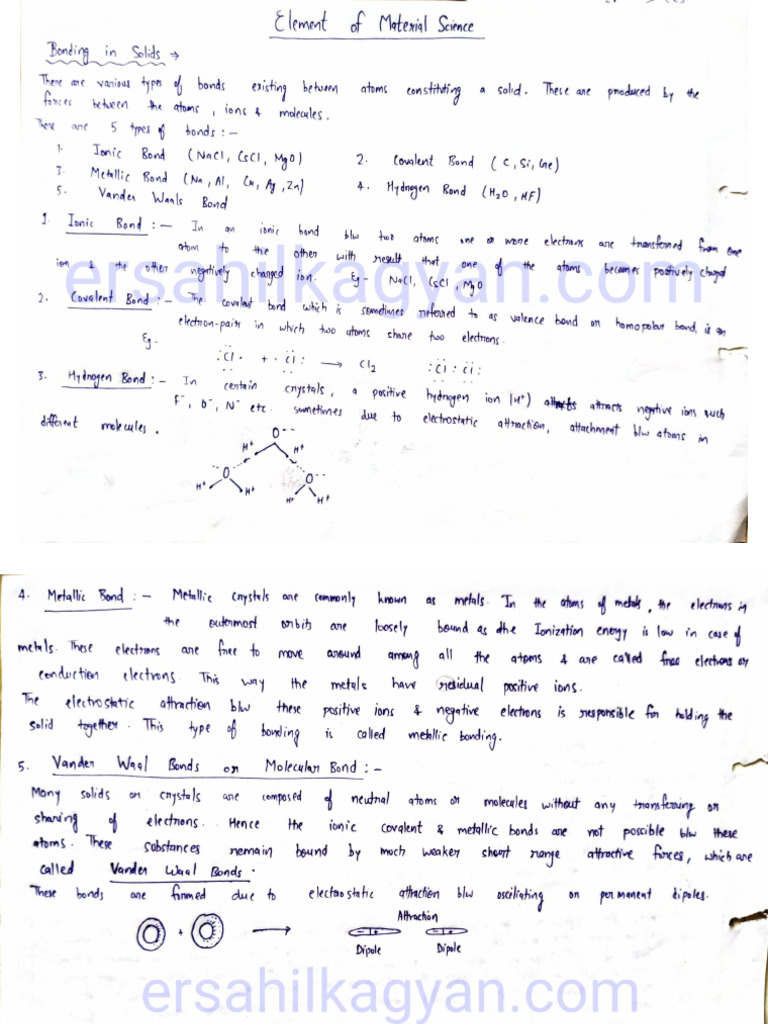 Element of Material Science
Bonding in Solids →
There are various types of bonds existing between atoms constituting a solid. These are produced by the
forces between the atoms, ions & molecules.
There are 5 types of bonds :-
1. Ionic Bond (NaCl, CsCl, MgO) 2. Covalent Bond (C, Si, Ge)
3. Metallic Bond (Na, Al, Cu, Ag, Zn) 4. Hydrogen Bond (H2O, HF)
5. Vander Waals Bond
1. Ionic Bond :- In an ionic bond b/w two atoms one or more electrons are transferred from one
atom to the other with result that one of the atoms becomes positively charged
ion & the other negatively charged ion. Eg - NaCl, CsCl, MgO
ersahilkagyan.com
2. Covalent Bond :- The covalent bond which is sometimes referred to as valence bond or homopolar bond, is an
electron-pairs in which two atoms share two electrons.
Eg. :Cl· + ·Cl: → Cl2 :Cl:Cl:
3. Hydrogen Bond :- In certain crystals, a positive hydrogen ion (H+) attracts negative ions such
F-, O-, N- etc. sometimes due to electrostatic attraction, attachment b/w atoms in
different molecules.
O--
H+ H+
O O--
H+ H+ H+ H+
4. Metallic Bond :- Metallic crystals are commonly known as metals. In the atoms of metals, the electrons in
the outermost orbits are loosely bound as the Ionization energy is low in case of
metals. These electrons are free to move around among all the atoms & are called free electrons or
conduction electrons. This way the metals have residual positive ions.
The electrostatic attraction b/w these positive ions & negative electrons is responsible for holding the
solid together. This type of bonding is called metallic bonding.
5. Vander Waal Bonds or Molecular Bond :-
Many solids or crystals are composed of neutral atoms or molecules without any transferring or
sharing of electrons. Hence the ionic covalent & metallic bonds are not possible b/w these
atoms. These substances remain bound by much weaker short range attractive forces, which are
called Vander Waal Bonds.
These bonds are formed due to electrostatic attraction b/w osciliating or permanent dipoles.
Attraction
+ → - + - +
Dipole Dipole
ersahilkagyan.com